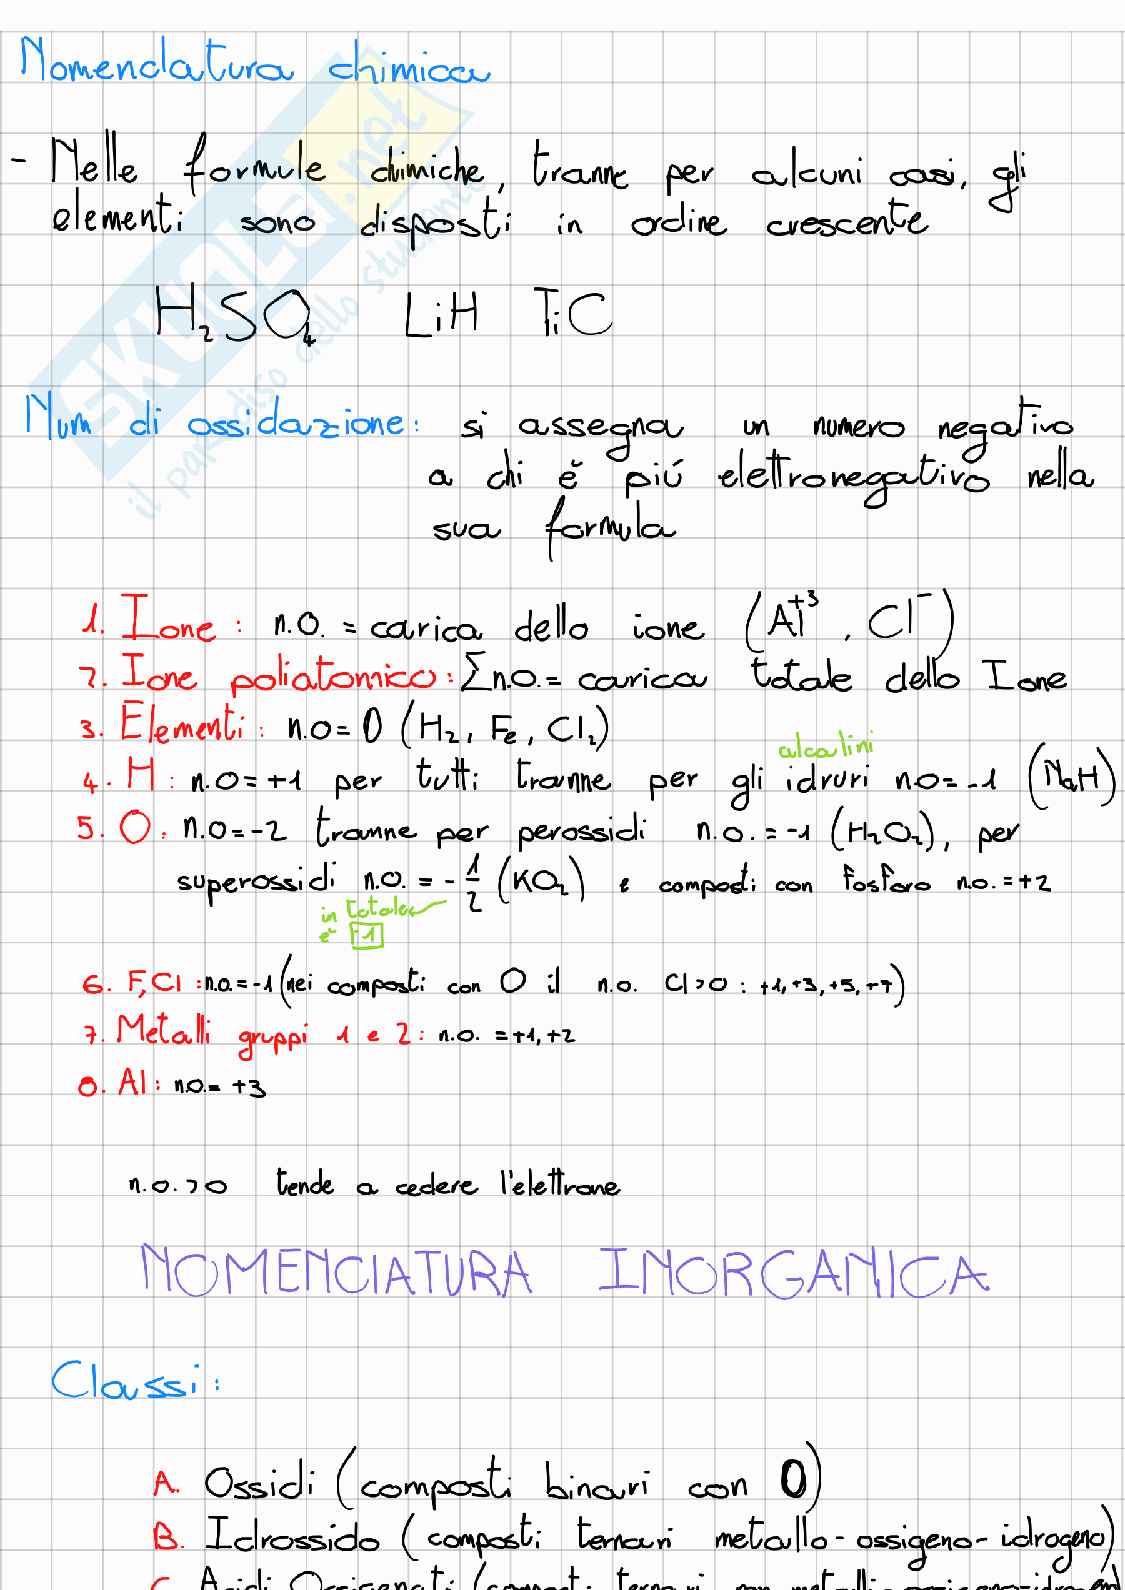 Nomenclatura chimica
- Nelle formule chimiche, tranne per alcuni casi, gli
elementi sono disposti in ordine crescente
H₂SO₄ LiH TiC
Num di ossidazione: si assegna un numero negativo
a chi è più elettronegativo nella
sua formula
1. Ione: n.O. = carica dello ione (Al⁺³, Cl⁻)
2. Ione poliatomico: Σn.O. = carica totale dello Ione
3. Elementi: n.O = 0 (H₂, Fe, Cl₂)
alcalini
4. H: n.O = +1 per tutti tranne per gli idruri n.o = -1 (NaH)
5. O: n.O = -2 tranne per perossidi n.O. = -1 (H₂O₂), per
superossidi n.O. = -1/2 (KO₂) e composti con fosforo n.o. = +2
in totale
è -1
6. F, Cl: n.o. = -1 (nei composti con O il n.o. Cl > 0: +1, +3, +5, +7)
7. Metalli gruppi 1 e 2: n.o. = +1, +2
8. Al: n.o. = +3
n.o. > 0 tende a cedere l'elettrone
NOMENCLATURA INORGANICA
Classi:
A. Ossidi (composti binari con O)
B. Idrossido (composti ternari metallo-ossigeno-idrogeno)
C. Acidi Ossigenati (composti ternari non metalli-ossigeno-idrogeno
SKUOLA.net
il paradiso dello studente